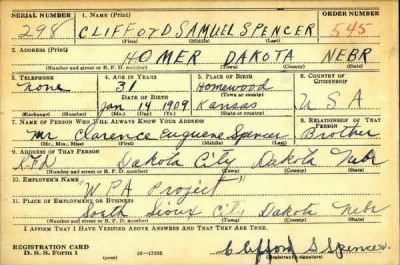 SERIAL NUMBER 1. NAME (Print) ORDER NUMBER
298 CLIFFOrD SAMUEL SPENCER 545
(First) (Middle) (Last)
2. ADDRESS (Print)
HOMER DAKOTA NEBR
(Number and street or R. F. D. number) (Town) (County) (State)
3. TELEPHONE 4. AGE IN YEARS 5. PLACE OF BIRTH 6. COUNTRY OF CITIZENSHIP
none 31 Homewood
DATE OF BIRTH (Town or county)
Jan 14 1909 Kansas U.S.A
(Exchange) (Number) (Mo.) (Day) (Yr.) (State or country)
7. NAME OF PERSON WHO WILL ALWAYS KNOW YOUR ADDRESS 8. RELATIONSHIP OF THAT PERSON
Mr Clarence Euguene Spencer Brother
(Mr., Mrs., Miss) (First) (Middle) (Last)
9. ADDRESS OF THAT PERSON
Dakota City Dakota Nebr
(Number and street or R. F. D. number) (Town) (County) (State)
10. EMPLOYER'S NAME
W.P.A Project
11. PLACE OF EMPLOYMENT OR BUSINESS
South Sioux City Dakota Nebr
(Number and street or R. F. D. number) (Town) (County) (State)
I AFFIRM THAT I HAVE VERIFIED ABOVE ANSWERS AND THAT THEY ARE TRUE.
REGISTRATION CARD
D. S. S. Form 1 16—17105 Clifford S Spencer
(Registrant's signature)